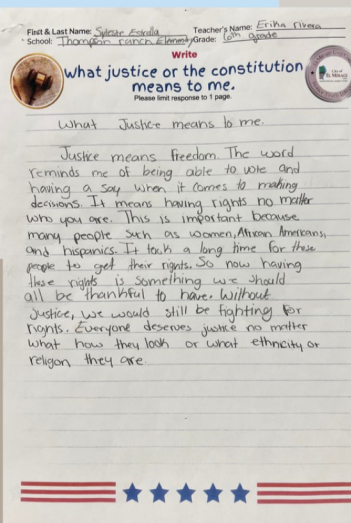 First & Last Name: Syleste Estrella Teacher's Name: Erika rivera
School: Thompson ranch Elementary Grade: 6th grade
Write
what justice or the constitution
means to me.
Please limit response to 1 page.
City of
EL MIRAGE
What Justice means to me.
Justice means freedom. The word
reminds me of being able to vote and
having a say when it comes to making
decisions. It means having rights no matter
who you are. This is important because
many people such as women, African Americans,
and hispanics. It took a long time for these
people to get their rights. So now having
these rights is something we should
all be thankful to have. Without
Justice, we would still be fighting for
rights. Everyone deserves justice no matter
what how they look or what ethnicity or
religon they are.